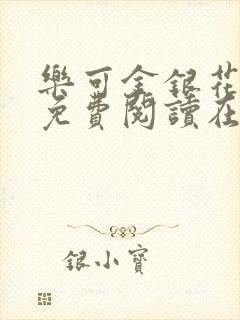 樂可金銀花
免費閱讀在
銀小寶